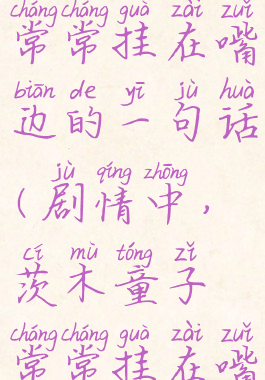 cháng cháng guà zài zuǐ
常常挂在嘴
biān de yī jù huà
边的一句话
jù qíng zhōng
(剧情中,
cí mù tóng zǐ
茨木童子
cháng cháng guà zài zuǐ
常常挂在嘴